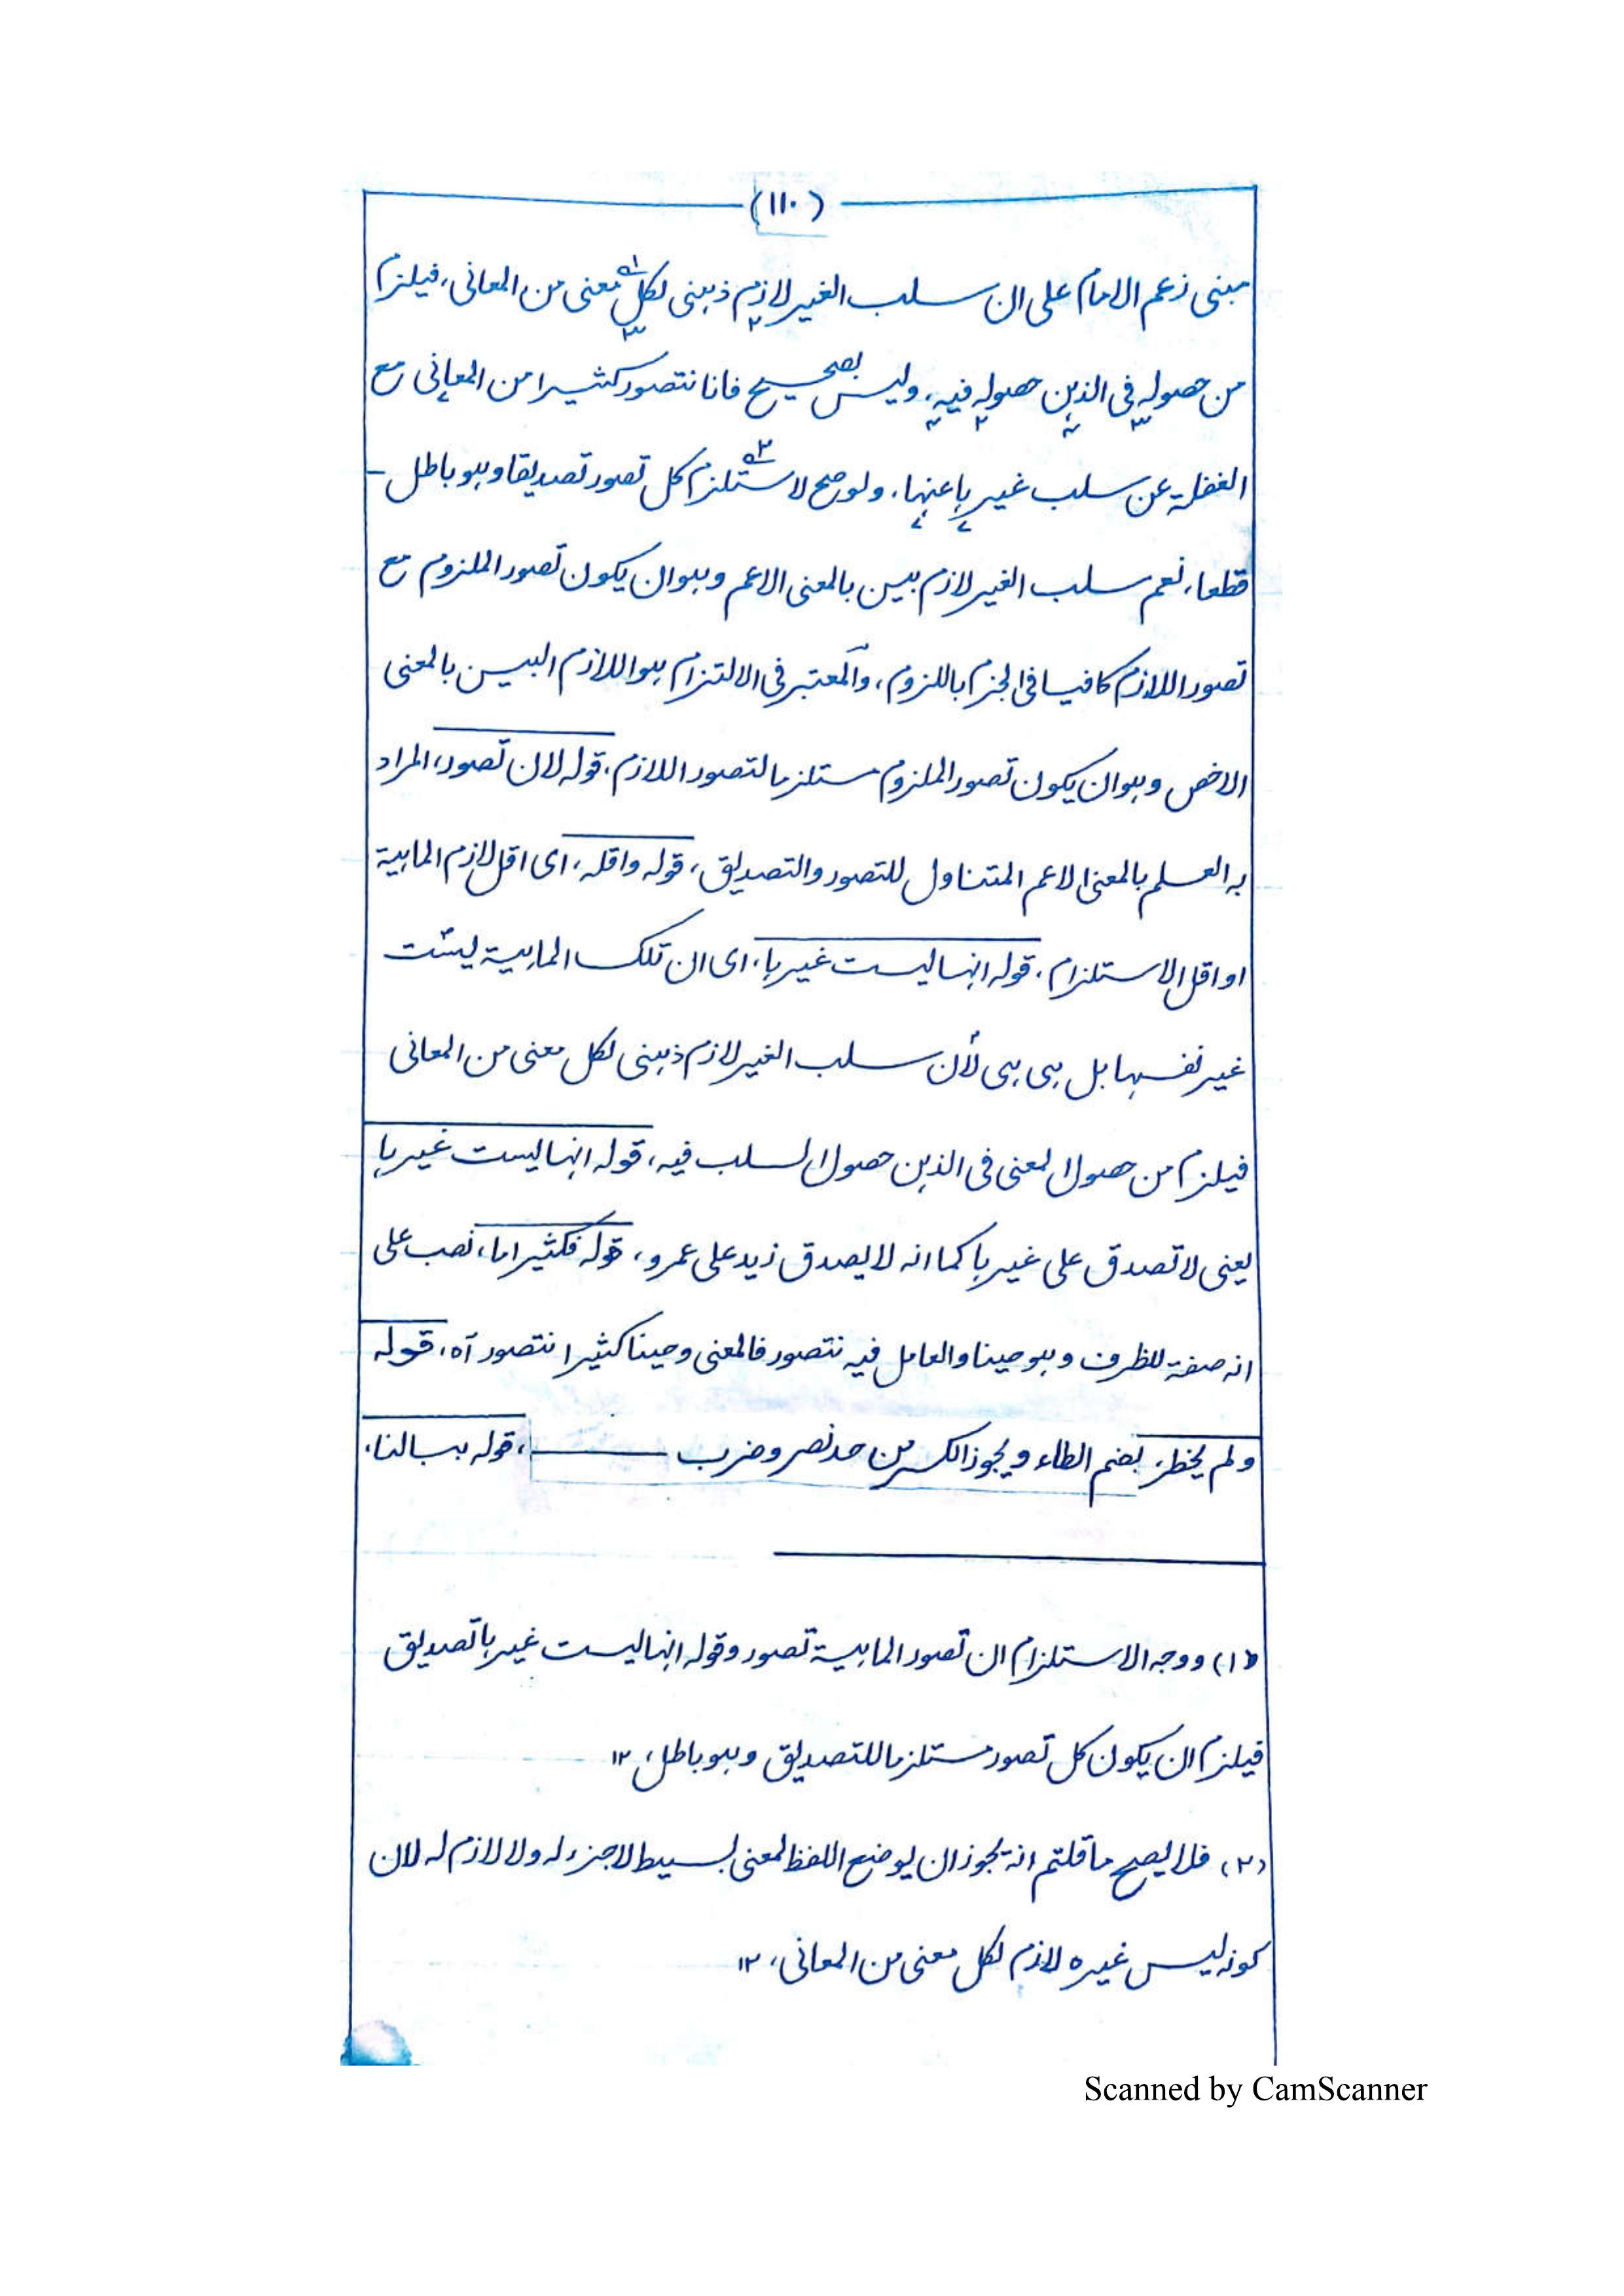 (١١٠)
مبنى زعم الامام على ان سلب الغير لازم ذهنى لكل معنى من المعانى، فيلزم
من حصوله فى الذهن حصوله فيه، وليس بصحيح فانا نتصور كثيرا من المعانى مع
الغفلة عن سلب غيرها عنها، ولو صح لاستلزم كل تصور تصديقا وهو باطل
قطعا، نعم سلب الغير لازم بين بالمعنى الاعم وهو ان يكون تصور الملزوم مع
تصور اللازم كافيا فى الجزم باللزوم، والمعتبر فى الالتزام هو اللازم البين بالمعنى
الاخص وهو ان يكون تصور الملزوم مستلزما لتصور اللازم، قوله لان تصور، المراد
به العلم بالمعنى الاعم المتناول للتصور والتصديق، قوله واقله، اى اقل لازم الماهية
او اقل الاستلزام، قوله انها ليست غيرها، اى ان تلك الماهية ليست
غير نفسها بل هى هى لأن سلب الغير لازم ذهنى لكل معنى من المعانى
فيلزم من حصول المعنى فى الذهن حصول السلب فيه، قوله انها ليست غيرها
يعنى لا تصدق على غيرها كما انه لا يصدق زيد على عمرو، قوله فكثيرا ما، نصب على
انه صفة للظرف وهو حينا والعامل فيه نتصور فالمعنى وحينا كثيرا نتصور آه، قوله
ولم يخطر، بضم الطاء ويجوز الكسر من حد نصر وضرب ، قوله ببالنا،
(١) ووجه الاستلزام ان تصور الماهية تصور وقوله انها ليست غيرها تصديق
فيلزم ان يكون كل تصور مستلزما للتصديق وهو باطل، ١٢
(٢) فلا يصح ما قلتم انه يجوز ان يوضع اللفظ لمعنى بسيط لا جزء له ولا لازم له لان
كونه ليس غيره لازم لكل معنى من المعانى، ١٢
Scanned by CamScanner